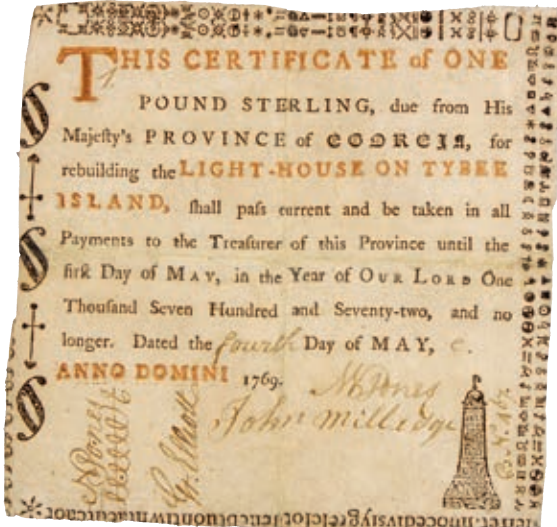 THIS CERTIFICATE of ONE
POUND STERLING, due from His
Majeſty's PROVINCE of GEORGIA, for
rebuilding the LIGHT-HOUSE ON TYBEE
ISLAND, ſhall paſs current and be taken in all
Payments to the Treaſurer of this Province until the
firſt Day of MAY, in the Year of OUR LORD One
Thouſand Seven Hundred and Seventy-two, and no
longer. Dated the fourth Day of MAY,
ANNO DOMINI 1769.
N Jones
John Milledge
N Jones
G. Elliott